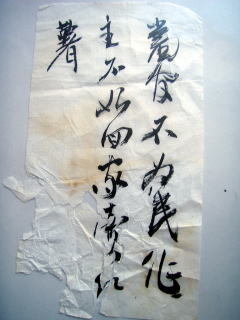 當官不为民作
主不如回家賣红
薯